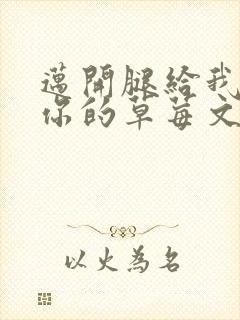 邁開腿給我
你的草莓文
以火為名